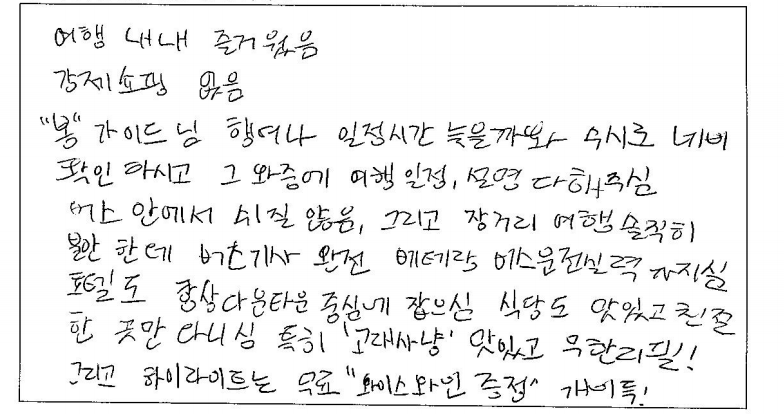 여행 내내 즐거웠음
강제쇼핑 없음
"봉" 가이드님 행여나 일정시간 늦을까봐 수시로 네비
확인 하시고 그 와중에 여행일정, 설명 다해주심
버스 안에서 쉬질 않음, 그리고 장거리 여행 솔직히
불안 한데 버스기사 완전 베테랑 버스운전실력 가지심
호텔도 항상 다운타운 중심에 잡으심 식당도 맛있고 친절
한 곳만 다니심 특히 '고대사냥' 맛있고 무한리필!
그리고 하이라이트는 무료 "와이스와인 증정" 개이득!